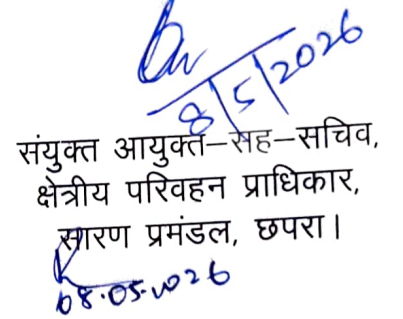 8/5/2026
संयुक्त आयुक्त–सह–सचिव,
क्षेत्रीय परिवहन प्राधिकार,
सारण प्रमंडल, छपरा।
08.05.2026